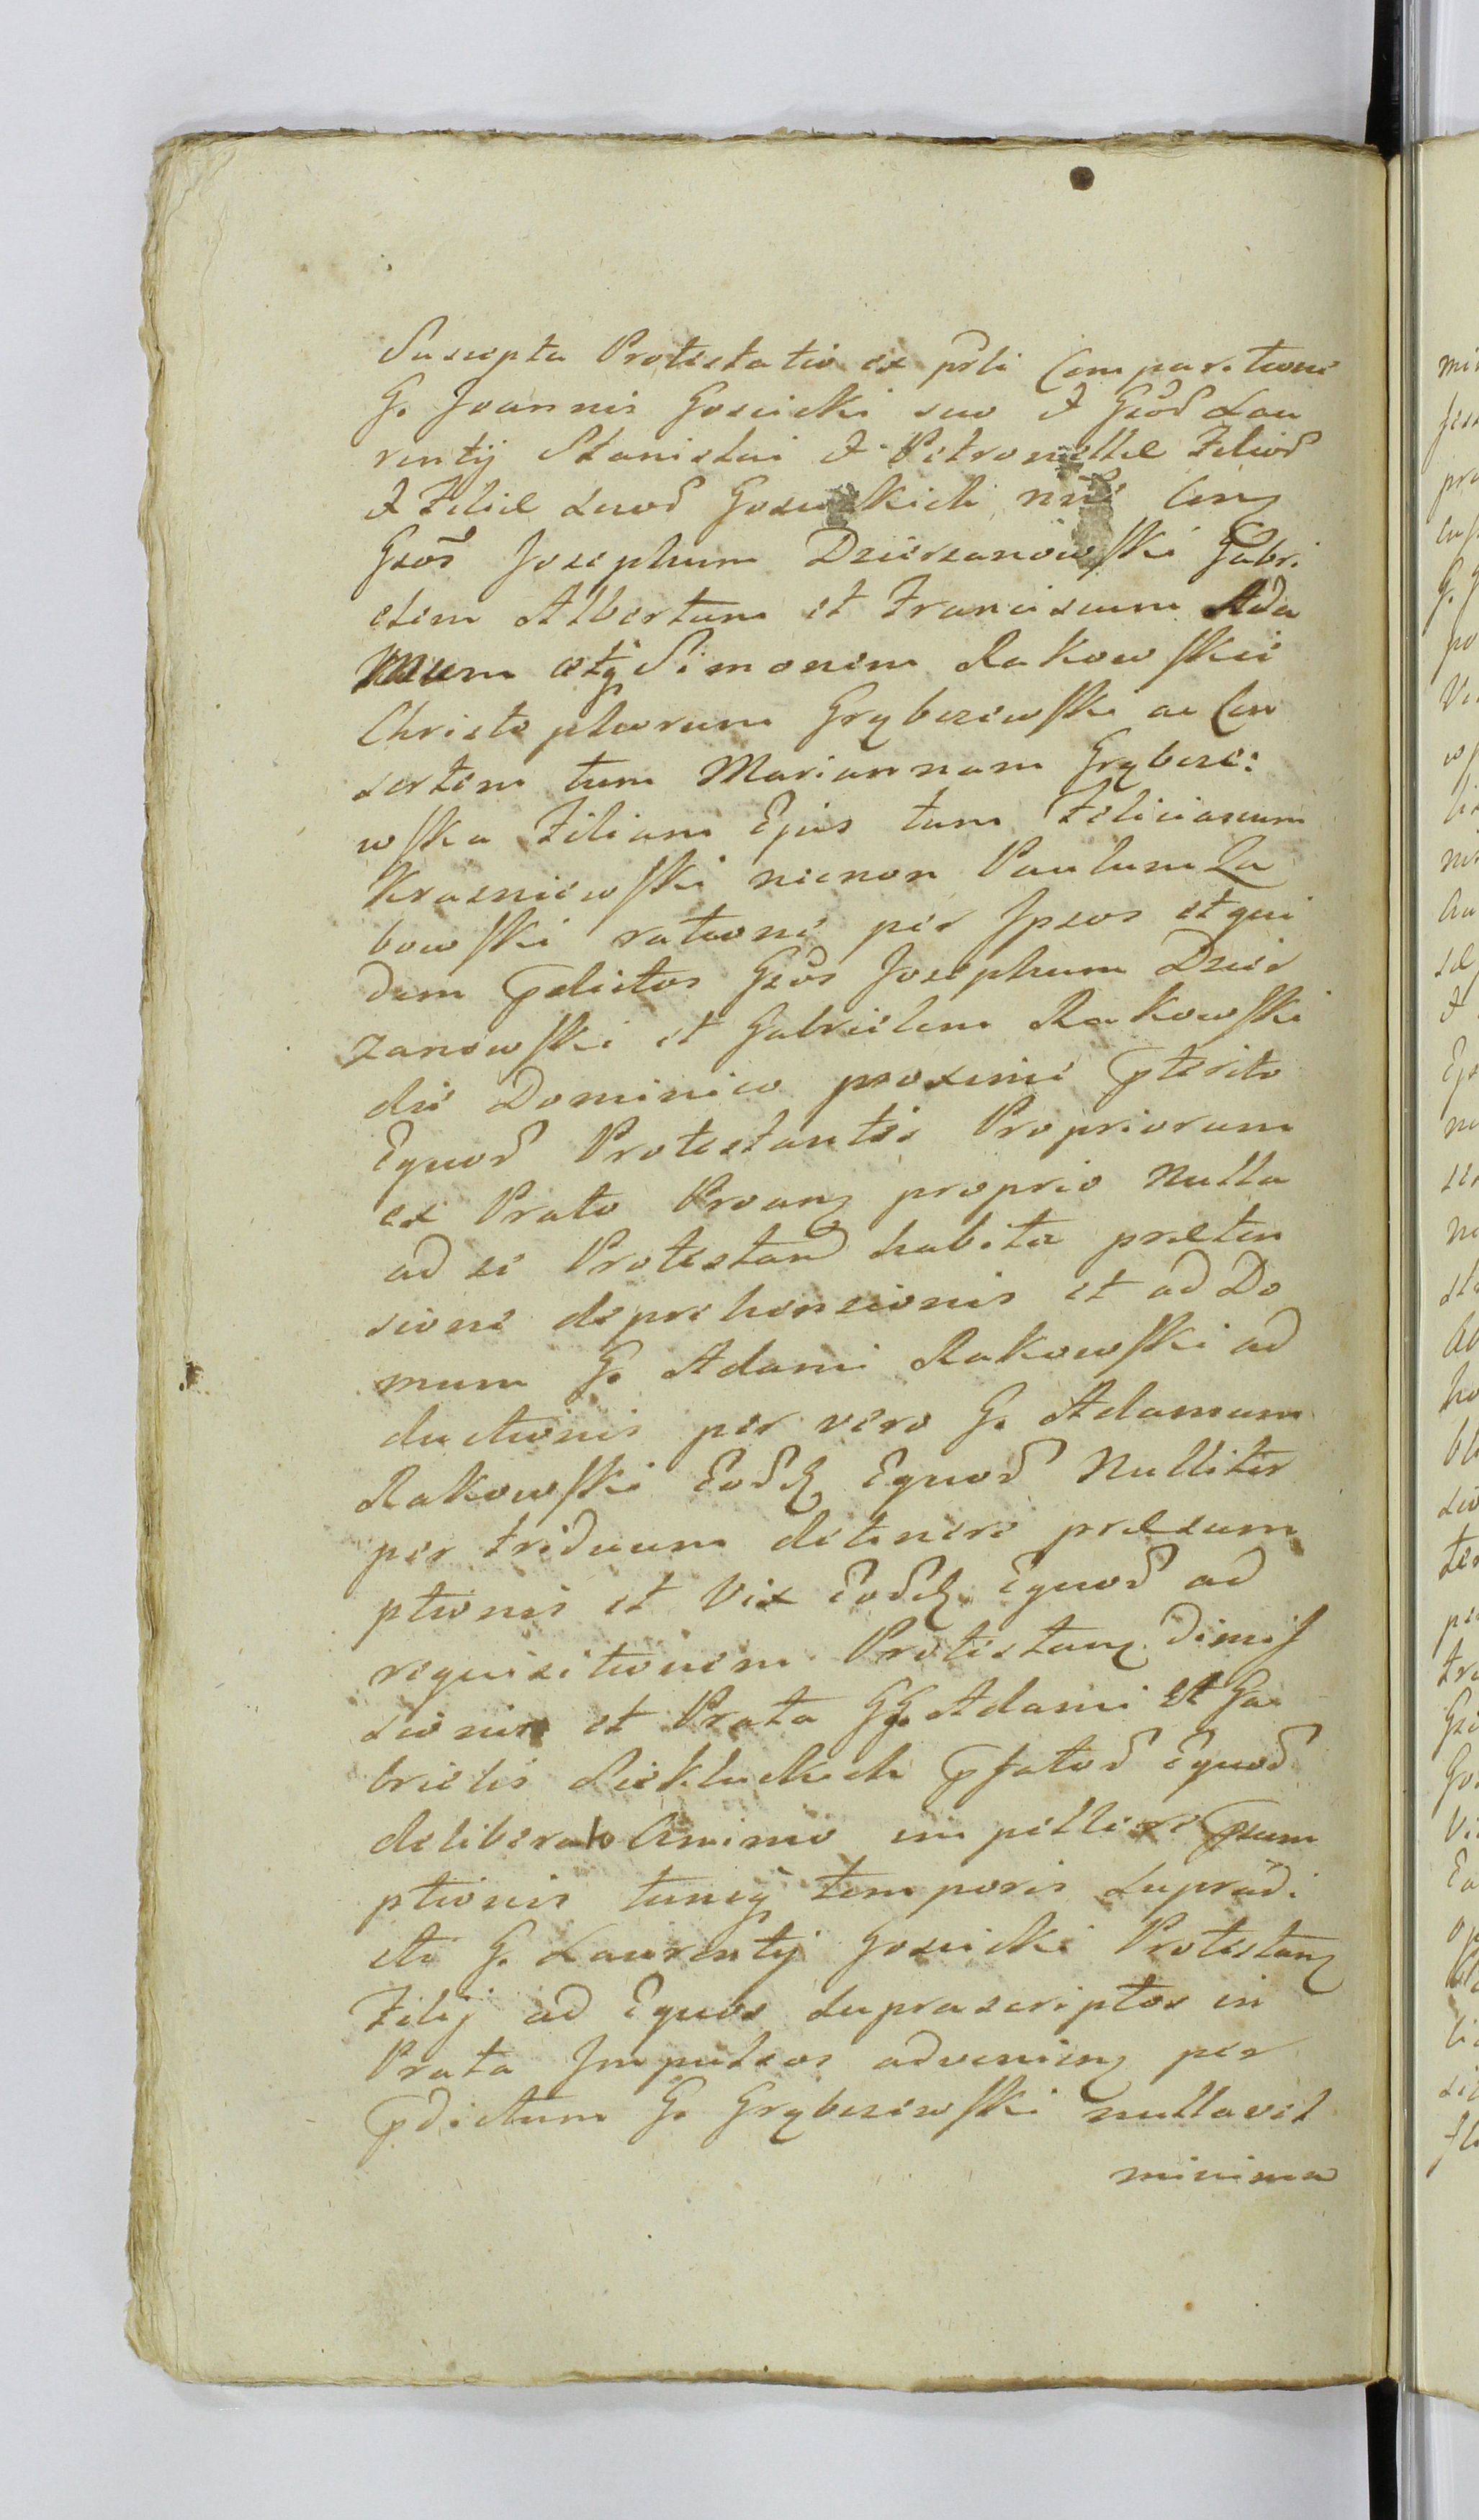 Suscepta Protestatio ex prsti Comparitione
G. Joannis Goscicki suo & Gsõr Lau
rentÿ Stanislai & Petronellæ Filior
& Filiæ suor Gosci kich nõe Conz
Gsõs Josephum Dzierzanowski Gabri
elem Albertum et Franciscum Ada
mum atq Simonem Rakowskie
Christophorum Grybczewski ac Con
sortem tum Mariannam Grybcze:
wska Filiam Ejus tum Felicianum
Krasniewski necnon Paulum Za
bowski ratione per Ipsos et qui
dem pdictos Gsõs Josephum Dzier
zanowski et Gabrielem Rakowski
die Dominico proxime pterito
Equor Protestantis Propriorum
ex Prato Proanz proprio Nulla
ad se Protestand habita præten
sione deprehensionis et ad Do
mum G. Adami Rakowski ad
ductionis per vero G. Adamum
Rakowski Eord Equor Nulliter
per triduum detinere præsum
ptionis et Vix Eord Equor ad
requisitionem Protestanz dimis
sionis et Prata GG. Adami et Ga
brielis Siekluckich pfator Equor
deliberato Animo impellere psum
ptionis tuncq temporis supradi
cti G. Laurentÿ Goscicki Protestanz
Filij ad Equos suprascriptos in
Prata Impulsos advenienz per
pdictum G. Grybczewski nulla vel
minima